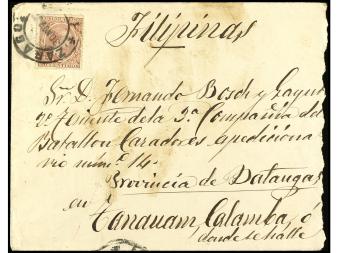 ZARAGO
Filipinas
Sr. D. Fernando Bosch y
2º Teniente de la 2ª Compañia del
Batallon Cazadores expediciona
rio num.º 14.
Provincia de Batangas
en
Tanauam, Calamba, ó
donde se halle